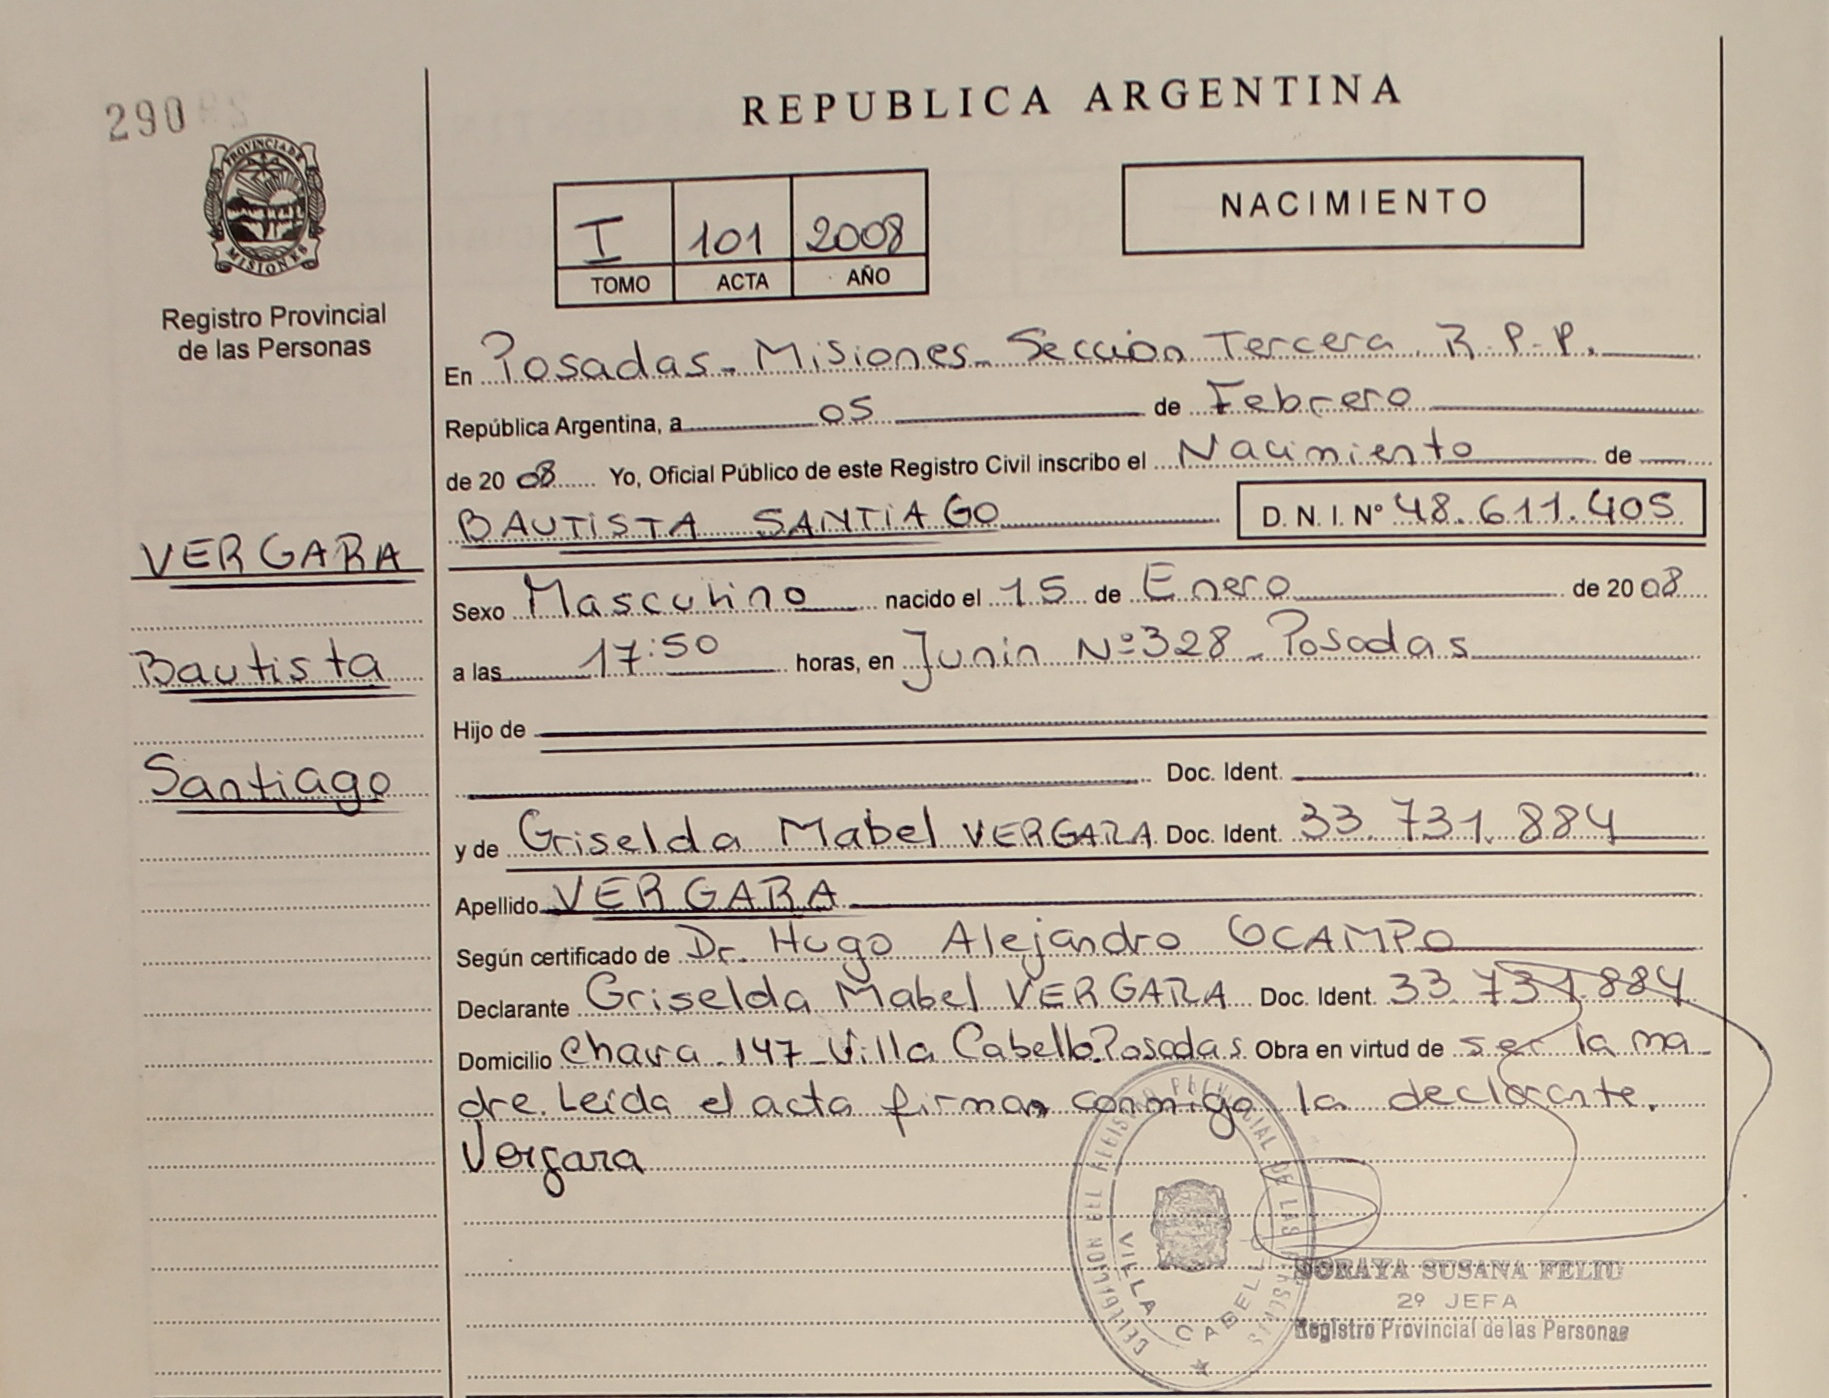 290
PROVINCIA DE
MISIONES
Registro Provincial
de las Personas
REPUBLICA ARGENTINA
I 101 2008
TOMO ACTA AÑO
NACIMIENTO
En Posadas - Misiones - Sección Tercera R.P.P.
República Argentina, a 05 de Febrero
de 2008 Yo, Oficial Público de este Registro Civil inscribo el Nacimiento de
BAUTISTA SANTIAGO D. N. I. N° 48.611.405
VERGARA
Sexo Masculino nacido el 15 de Enero de 2008
Bautista
a las 17:50 horas, en Junin Nº 328 - Posadas
Hijo de
Santiago
Doc. Ident.
y de Griselda Mabel VERGARA Doc. Ident. 33.731.884
Apellido VERGARA
Según certificado de Dr. Hugo Alejandro OCAMPO
Declarante Griselda Mabel VERGARA Doc. Ident. 33.731.884
Domicilio Chava 147 - Villa Cabello. Posadas Obra en virtud de ser la ma-
dre. Leída el acta firman conmigo la declarante.
Vergara
DELEGACION DEL REGISTRO PROVINCIAL DE LAS PERSONAS
VILLA CABELLO
SORAYA SUSANA FELIU
2º JEFA
Registro Provincial de las Personas